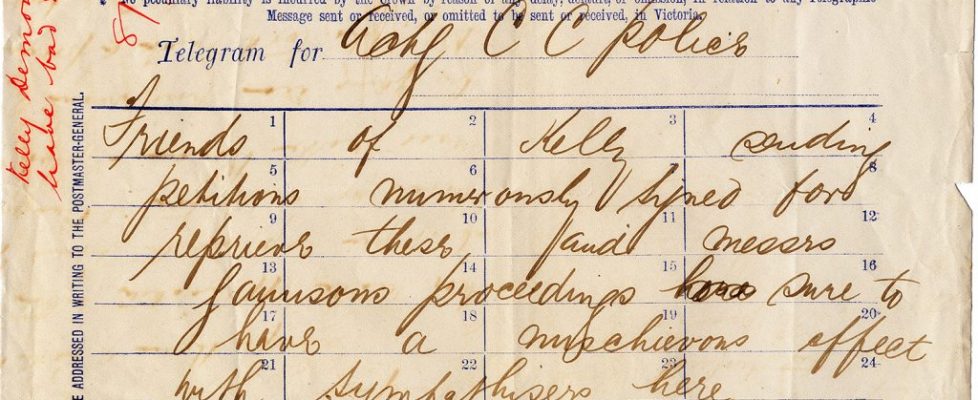 No pecuniary liability is incurred by the Crown by reason of any delay, default, or omission, in any Telegraphic
Message sent or received, or omitted to be sent or received, in Victoria.
Telegram for Actg C C police
Friends of Kelly sending
petitions numerously signed for
reprieve these and messrs
Gaunsons proceedings sure to
have a mischievous effect
with sympathisers here
1 2 3 4
5 6 8
9 10 11 12
13 14 15 16
17 18 19 20
21 22 23 24
E ADDRESSED IN WRITING TO THE POSTMASTER-GENERAL.
Kelly
have bad